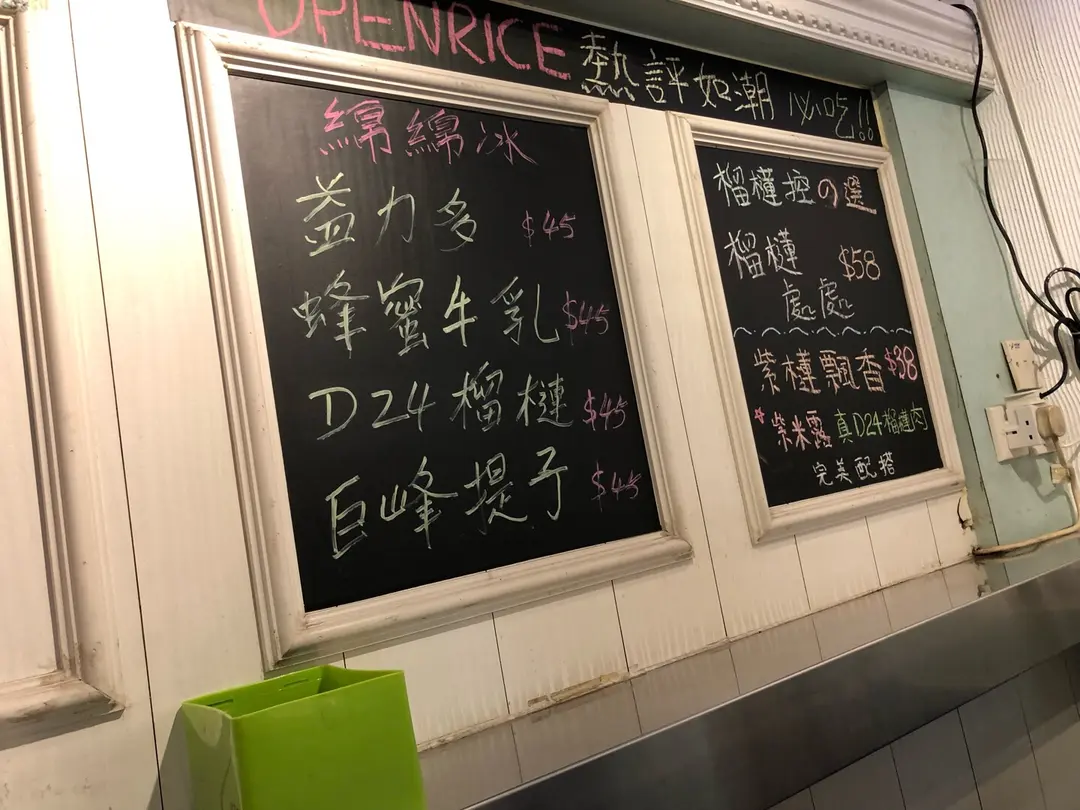 OPENRICE 熱評如潮 必吃!!
綿綿冰
益力多 $45
蜂蜜牛乳 $45
D24榴槤 $45
巨峰提子 $45
榴槤控の選
榴槤 $58
處處
紫槤飄香 $38
*紫米露 真D24榴槤肉
完美配搭